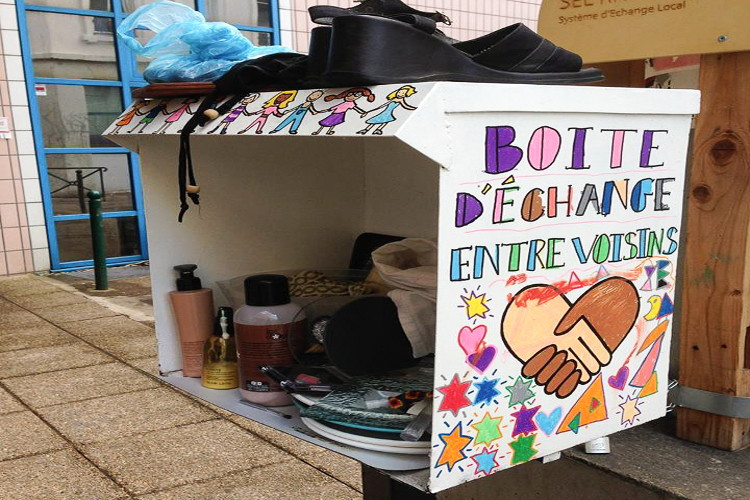 Système d'Echange Local
BOITE
D'ÉCHANGE
ENTRE VOISINS